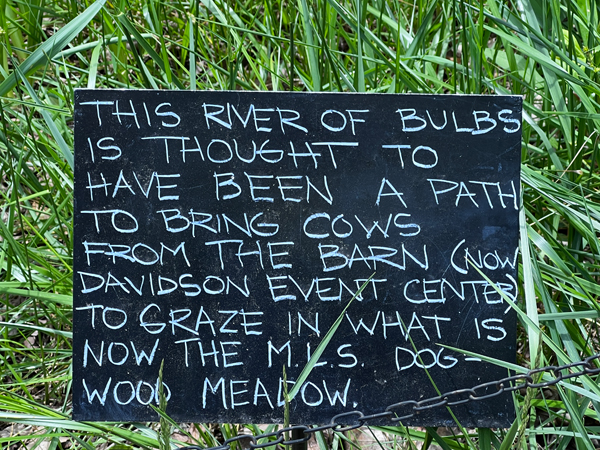 THIS RIVER OF BULBS
IS THOUGHT TO
HAVE BEEN A PATH
TO BRING COWS
FROM THE BARN (NOW
DAVIDSON EVENT CENTER)
TO GRAZE IN WHAT IS
NOW THE M.L.S. DOG-
WOOD MEADOW.